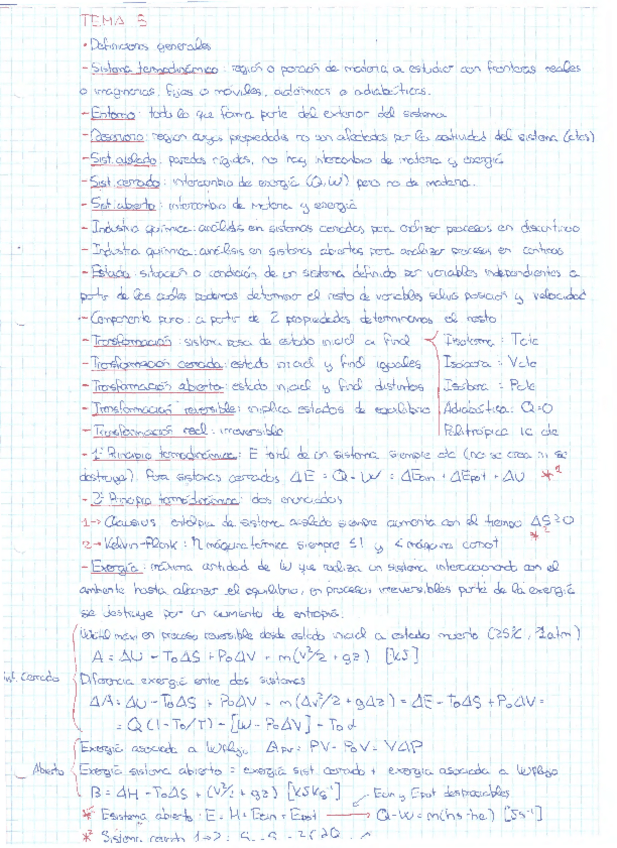 TEMA 5
• Definiciones generales
- Sistema termodinámico: región o porción de materia a estudiar con fronteras reales
o imaginarias, fijas o móviles, diatérmicas o adiabáticas.
- Entorno: todo lo que forma parte del exterior del sistema
- Reservorio: región cuyas propiedades no son afectadas por la actividad del sistema (ctes)
- Sist. aislado: paredes rígidas, no hay intercambio de materia y energía
- Sist. cerrado: intercambio de energía (Q, W) pero no de materia.
- Sist. abierto: intercambio de materia y energía
- Industria química: análisis en sistemas cerrados para analizar procesos en discontinuo
- Industria química: análisis en sistemas abiertos para analizar procesos en continuo
- Estado: situación o condición de un sistema definido por variables independientes a
partir de las cuales podemos determinar el resto de variables salvo posición y velocidad
- Componente puro: a partir de 2 propiedades determinamos el resto
- Transformación: sistema pasa de estado inicial a final
Isoterma: T cte
- Transformación cerrada: estado inicial y final iguales
Isócora: V cte
- Transformación abierta: estado inicial y final distintos
Isóbara: P cte
- Transformación reversible: implica estados de equilibrio
Adiabática: Q=0
- Transformación real: irreversible
Politrópica: K cte
- 1er Principio termodinámica: E total de un sistema siempre cte (no se crea ni se
destruye). Para sistemas cerrados ΔE = Q - W = ΔEcin + ΔEpot + ΔU *¹
- 2º Principio termodinámica: dos enunciados
1→ Clausius: entropía de sistema aislado siempre aumenta con el tiempo ΔS≥0
*²
2→ Kelvin-Plank: η máquina térmica siempre ≤1 y < máquina carnot
- Exergía: máxima cantidad de W que realiza un sistema interaccionando con el
ambiente hasta alcanzar el equilibrio, en procesos irreversibles parte de la exergía
se destruye por un aumento de entropía.
W útil máx en proceso reversible desde estado inicial a estado muerto (25ºC, 1atm)
A = ΔU - T₀ΔS + P₀ΔV + m(v²/2 + gz) [kJ]
Cerrado
Diferencia exergía entre dos sistemas
ΔA = ΔU - T₀ΔS + P₀ΔV - m(Δv²/2 + gΔz) = ΔE - T₀ΔS + P₀ΔV =
= Q(1 - T₀/T) - [W - P₀ΔV] - T₀
Exergía asociada a Wflujo: Apv = PV - P₀V = VΔP
Abierto
Exergía sistema abierto = exergía sist. cerrado + exergía asociada a Wflujo
B = ΔH - T₀ΔS + (v²/2 + gz) [kJ kg⁻¹]
Ecin y Epot despreciables
* Esistema abierto: E = H + Ecin + Epot → Q - W = m(hs - he) [J s⁻¹]
*² Sistema 1→2: